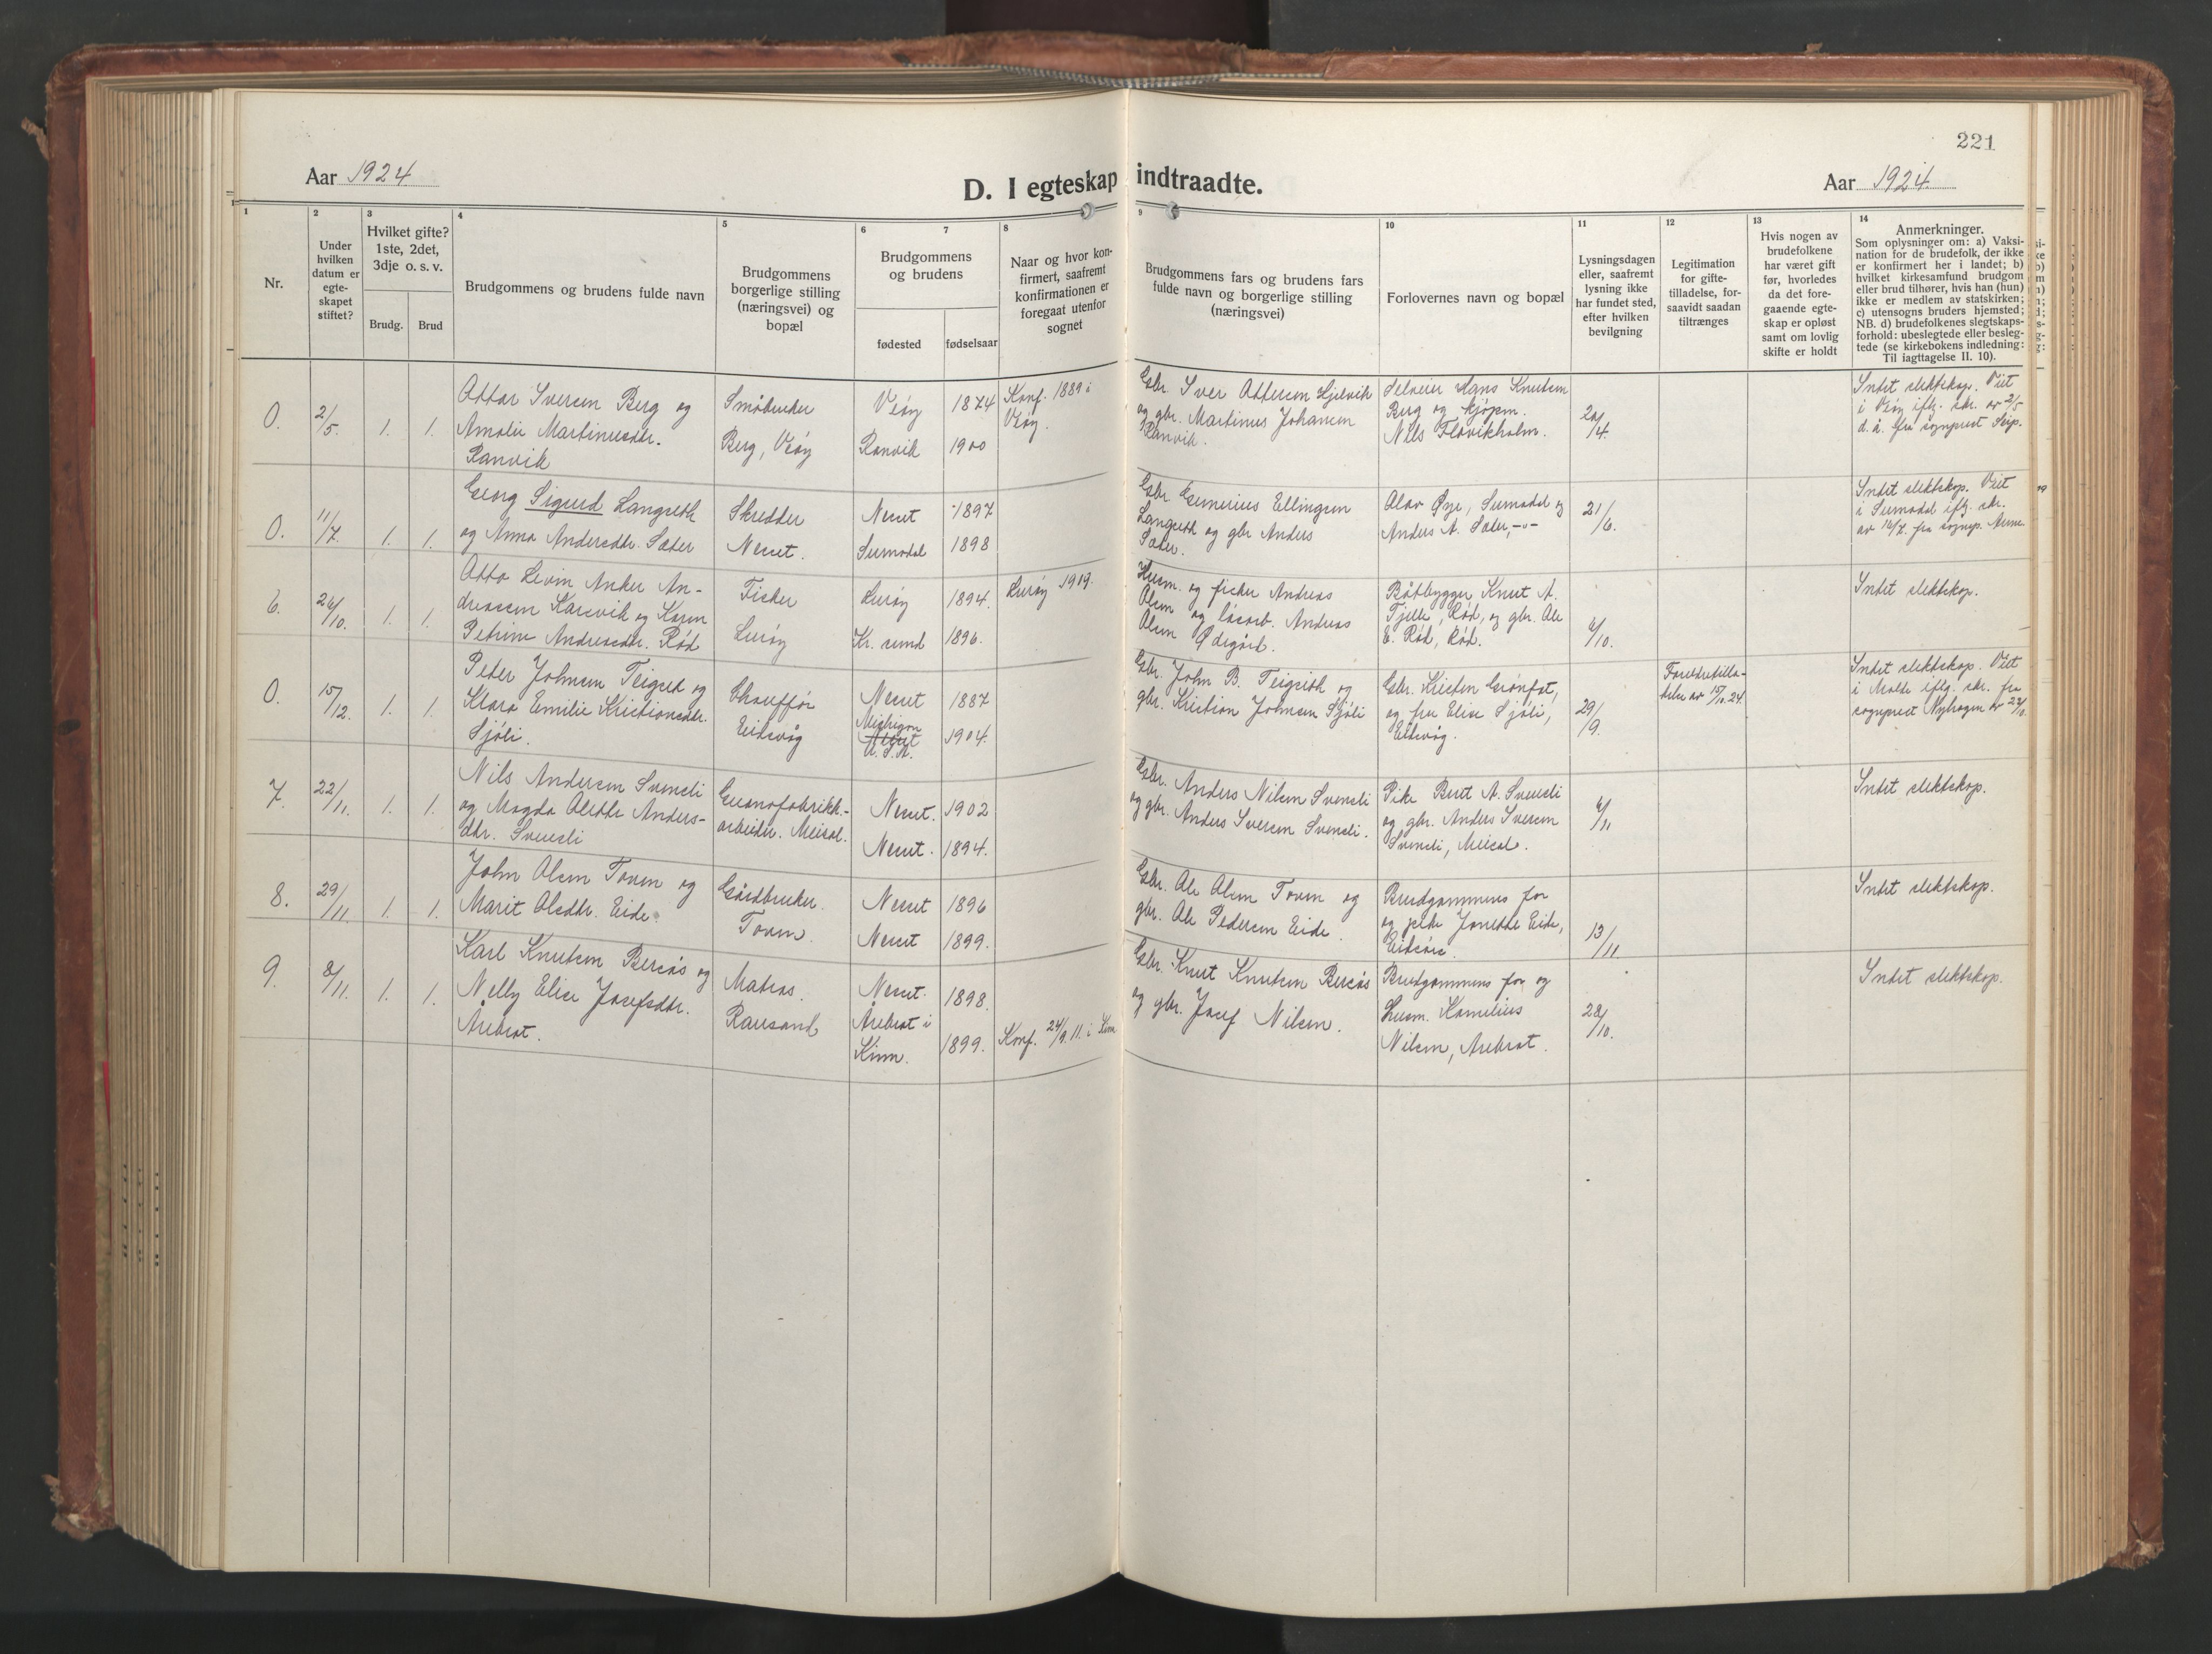 221
Aar 1924
D. I egteskap indtraadte.
Aar 1924.
1
2
3
4
5
6
7
8
9
10
11
12
13
14
Nr.
Under
hvilken
datum er
egte-
skapet
stiftet?
Hvilket gifte?
1ste, 2det,
3dje o. s. v.
Brudg.
Brud
Brudgommens og brudens fulde navn
Brudgommens
borgerlige stilling
(næringsvei) og
bopæl
Brudgommens
og brudens
fødested
fødselsaar
Naar og hvor kon-
firmert, saafremt
konfirmationen er
foregaat utenfor
sognet
Brudgommens fars og brudens fars
fulde navn og borgerlige stilling
(næringsvei)
Forlovernes navn og bopæl
Lysningsdagen
eller, saafremt
lysning ikke
har fundet sted,
efter hvilken
bevilgning
Legitimation
for gifte-
tilladelse, for-
saavidt saadan
tiltrænges
Hvis nogen av
brudefolkene
har været gift
før, hvorledes
da det fore-
gaaende egte-
skap er opløst
samt om lovlig
skifte er holdt
Anmerkninger.
Som oplysninger om: a) Vaksi-
nation for de brudefolk, der ikke
er konfirmert her i landet; b)
hvilket kirkesamfund brudgom
eller brud tilhører, hvis han (hun)
ikke er medlem av statskirken;
c) utensogns bruders hjemsted;
NB. d) brudefolkenes slegtskaps-
forhold: ubeslegtede eller besleg-
tede (se kirkebokens indledning:
Til iagttagelse II. 10).
0.
2/5.
1.
1.
Ottar Iversen Berg og
Amalie Martinusdtr.
Ranvik
Småbruker
Berg, Veøy
Veøy
Ranvik
1874
1900
Konf. 1889 i
Veøy.
Gbr. Iver Ottersen Gjelvik
og gbr. Martinus Johansen
Ranvik.
Selveier Hans Knutsen
Berg og kjøpm.
Nils Flovikholm.
20/4.
Intet slektskap. Viet
i Veøy iflg. skr. av 2/5
d. å. fra sogneprest
0.
11/7.
1.
1.
Georg Sigurd Langseth
og Anna Andersdtr. Sæter
Skredder
Nesset.
Nesset
Surnadal
1897
1898
Gbr. Gunerius Ellingsen
Langseth og gbr Anders
Sæter.
Olav Øye, Surnadal og
Anders A. Sæter, -"-
21/6.
Intet slektskap. Viet
i Surnadal iflg. skr.
av 12/7. fra sognep.
6.
26/10.
1.
1.
Otto Levin Anker An-
dreassen Karsvik og Karen
Petrine Andreasdtr. Rød
Fisker
Lurøy
Lurøy
Kr. sund
1894.
1896.
Lurøy 1919.
Husm. og fisker Andreas
Olsen og løsarb. Andreas
Olsen Ødegård.
Båtbygger Knut A.
Tjelle, Rød, og gbr. Ole
E. Rød, Rød.
4/10.
Intet slektskap.
0.
15/12.
1.
1.
Peter Johnsen Teigset og
Klara Emilie Kristiansdtr.
Sjøli.
Chauffør
Eidsvåg
Nesset
Michigan
Nesset
U. S. A.
1887
1904.
Gbr. John B. Teigseth og
gbr. Kristian Johnsen Sjøli
Gbr. Kristen Grønset,
og fru Elise Sjøli,
Eidsvåg.
29/9.
Foreldretilla-
delse av 15/10.24.
Intet slektskap. Viet
i Molde iflg. skr. fra
sogneprest Nyhagen av
7.
22/11.
1.
1.
Nils Andersen Svensli
og Magda Olette Anders-
dtr. Svensli
Guanofabrikk-
arbeider. Meisal.
Nesset.
Nesset.
1902
1894.
Gbr. Anders Nilsen Svensli
og gbr. Anders Iversen Svensli.
Pike Berit A. Svensli
og gbr. Anders Iversen
Svensli, Meisal.
4/11
Intet slektskap.
8.
29/11.
1.
1.
John Olsen Toven og
Marit Olsdtr. Eide
Gårdbruker.
Toven.
Nesset
Nesset
1896
1899.
Gbr. Ole Olsen Toven og
gbr. Ole Pedersen Eide.
Brudgommens far
og pike Jonette Eide,
13/11.
Intet slektskap.
9.
8/11.
1.
1.
Karl Knutsen Bersås og
Nelly Elise Josefsdtr.
Årebrot.
Matros.
Rausand
Nesset.
Årebrot i
Kinn.
1898.
1899.
Konf. 24/9.11. i Kinn
Gbr. Knut Knutsen Bersås
og gbr. Josef Nilsen.
Brudgommens far og
husm. Kornelius
Nilsen, Årebrot.
28/10.
Intet slektskap.